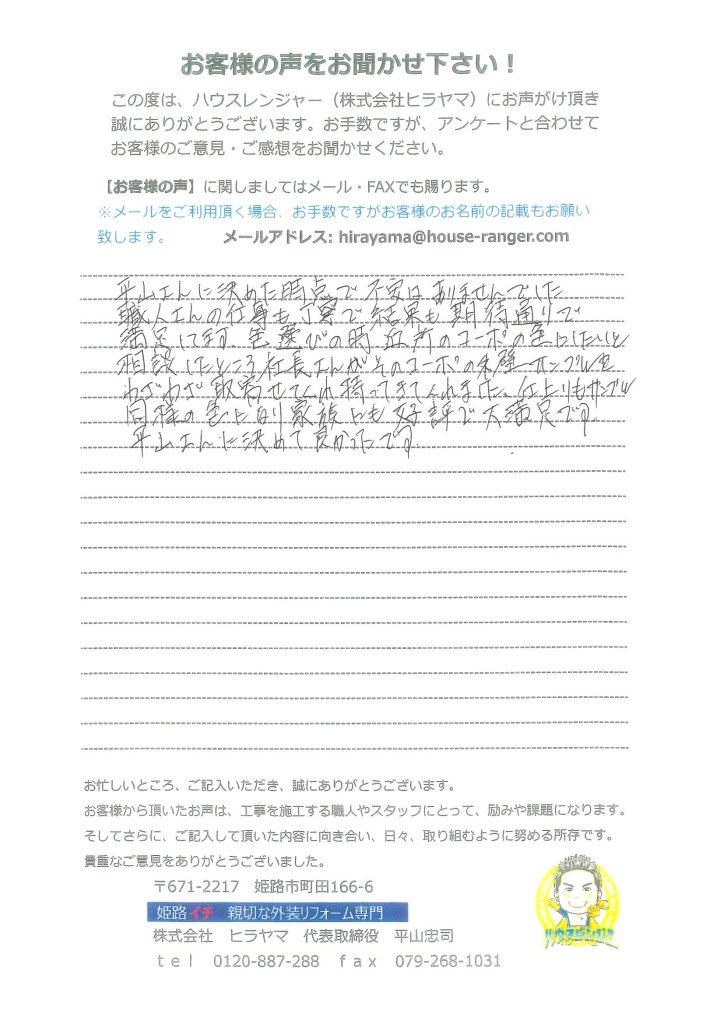 お客様の声をお聞かせ下さい！
この度は、ハウスレンジャー（株式会社ヒラヤマ）にお声がけ頂き
誠にありがとうございます。お手数ですが、アンケートと合わせて
お客様のご意見・ご感想をお聞かせください。
【お客様の声】に関しましてはメール・FAXでも賜ります。
※メールをご利用頂く場合、お手数ですがお客様のお名前の記載もお願い
致します。 メールアドレス: hirayama@house-ranger.com
平山さんに決めた時点で不安はありませんでした
職人さんの仕事も丁寧で結果も期待通りで
満足してます。色選びの時近所のコーポの色にしたいと
相談したところ社長さんがそのコーポの外壁サンプルを
わざわざ取寄せてくれ持ってきてくれました。仕上りもサンプル
同様の色になり家族にも好評で大満足です。
平山さんに決めて良かったです
お忙しいところ、ご記入いただき、誠にありがとうございます。
お客様から頂いたお声は、工事を施工する職人やスタッフにとって、励みや課題になります。
そしてさらに、ご記入して頂いた内容に向き合い、日々、取り組むように努める所存です。
貴重なご意見をありがとうございました。
〒671-2217 姫路市町田166-6
姫路イチ 親切な外装リフォーム専門
株式会社 ヒラヤマ 代表取締役 平山忠司
ｔｅｌ 0120-887-288 ｆａｘ 079-268-1031
ハウスレンジャー